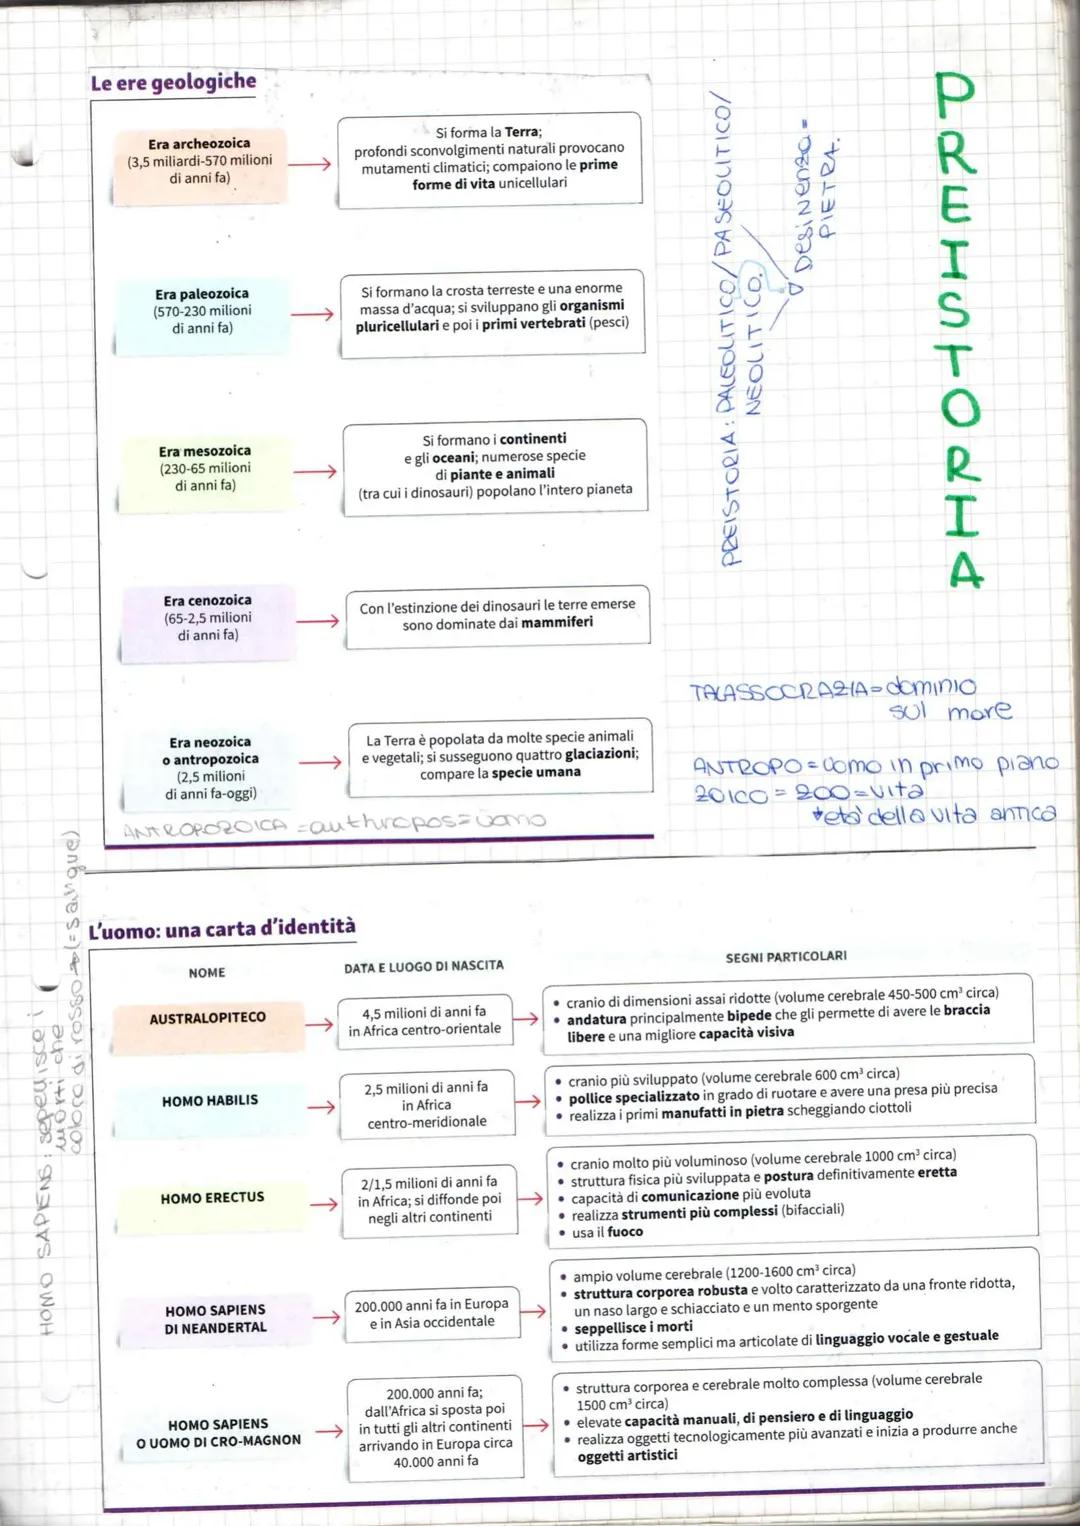 Le ere geologiche
Era archeozoica
(3,5 miliardi-570 milioni
di anni fa)
Si forma la Terra;
profondi sconvolgimenti naturali provocano
mutamenti climatici; compaiono le prime
forme di vita unicellulari
Era paleozoica
(570-230 milioni
di anni fa)
Si formano la crosta terreste e una enorme
massa d'acqua; si sviluppano gli organismi
pluricellulari e poi i primi vertebrati (pesci)
Era mesozoica
(230-65 milioni
di anni fa)
Si formano i continenti
e gli oceani; numerose specie
di piante e animali
(tra cui i dinosauri) popolano l'intero pianeta
Era cenozoica
(65-2,5 milioni
di anni fa)
Con l'estinzione dei dinosauri le terre emerse
sono dominate dai mammiferi
Era neozoica
o antropozoica
(2,5 milioni
di anni fa-oggi)
La Terra è popolata da molte specie animali
e vegetali; si susseguono quattro glaciazioni;
compare la specie umana
ANTROPOZOICA = authropos = uomo
PREISTORIA
PREISTORIA: PALEOLITICO/PASEOLITICO/
NEOLITICO.
Desinenza =
PIETRA.
TALASSOCRAZIA = dominio
sul mare
ANTROPO = uomo in primo piano
ZOICO = ZOO = vita
*età della vita antica
L'uomo: una carta d'identità
NOME
DATA E LUOGO DI NASCITA
SEGNI PARTICOLARI
AUSTRALOPITECO
4,5 milioni di anni fa
in Africa centro-orientale
• cranio di dimensioni assai ridotte (volume cerebrale 450-500 cm³ circa)
• andatura principalmente bipede che gli permette di avere le braccia
libere e una migliore capacità visiva
HOMO HABILIS
2,5 milioni di anni fa
in Africa
centro-meridionale
• cranio più sviluppato (volume cerebrale 600 cm³ circa)
• pollice specializzato in grado di ruotare e avere una presa più precisa
• realizza i primi manufatti in pietra scheggiando ciottoli
HOMO ERECTUS
2/1,5 milioni di anni fa
in Africa; si diffonde poi
negli altri continenti
• cranio molto più voluminoso (volume cerebrale 1000 cm³ circa)
• struttura fisica più sviluppata e postura definitivamente eretta
• capacità di comunicazione più evoluta
• realizza strumenti più complessi (bifacciali)
• usa il fuoco
HOMO SAPIENS
DI NEANDERTAL
200.000 anni fa in Europa
e in Asia occidentale
• ampio volume cerebrale (1200-1600 cm³ circa)
• struttura corporea robusta e volto caratterizzato da una fronte ridotta,
un naso largo e schiacciato e un mento sporgente
• seppellisce i morti
• utilizza forme semplici ma articolate di linguaggio vocale e gestuale
HOMO SAPIENS
O UOMO DI CRO-MAGNON
200.000 anni fa;
dall'Africa si sposta poi
in tutti gli altri continenti
arrivando in Europa circa
40.000 anni fa
• struttura corporea e cerebrale molto complessa (volume cerebrale
1500 cm³ circa)
• elevate capacità manuali, di pensiero e di linguaggio
• realizza oggetti tecnologicamente più avanzati e inizia a produrre anche
oggetti artistici
HOMO SAPENS: sepellisce i
morti che
colora di rosso (=sangue)